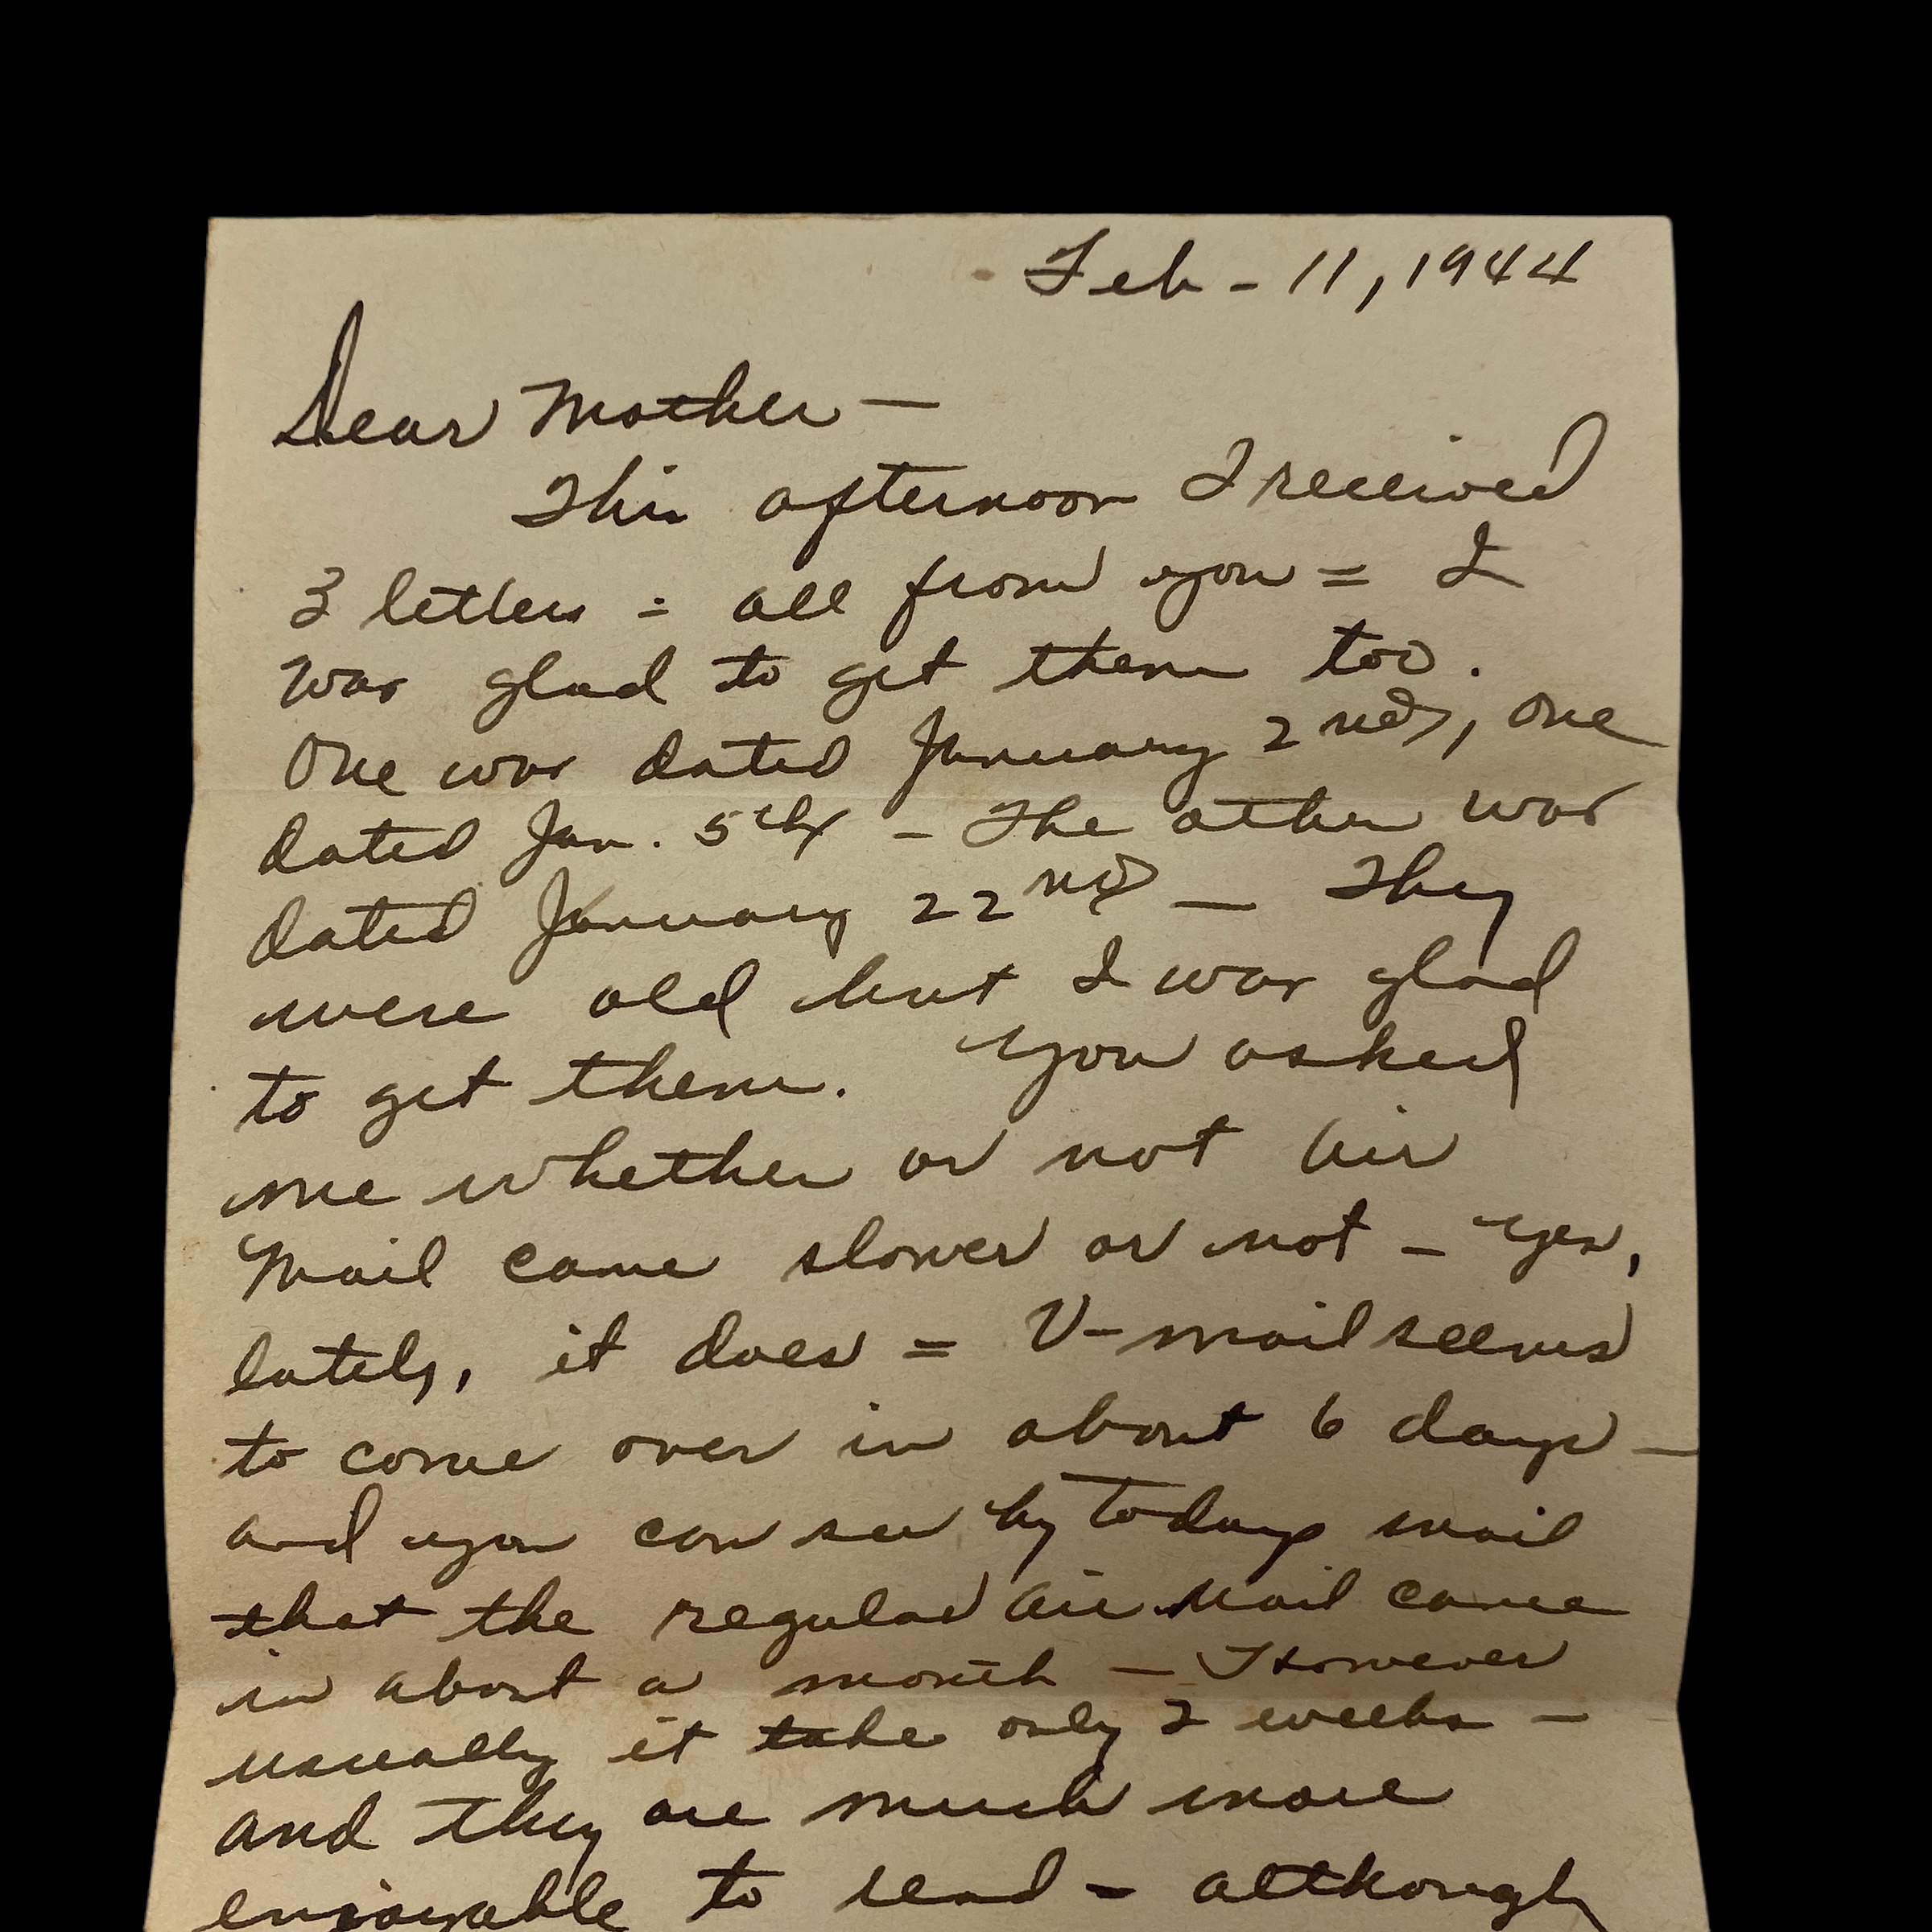 Feb - 11, 1944
Dear Mother —
This afternoon I received
3 letters = all from you = I
was glad to get them too.
One was dated January 2nd, one
dated Jan. 5th - The other was
dated January 22nd — They
were old but I was glad
to get them. You asked
me whether or not Air
Mail came slower or not - Yes,
lately, it does = V-mail seems
to come over in about 6 days —
and you can see by todays mail
that the regular Air Mail came
in about a month — However
usually it take only 2 weeks -
and they are much more
enjoyable to read - although